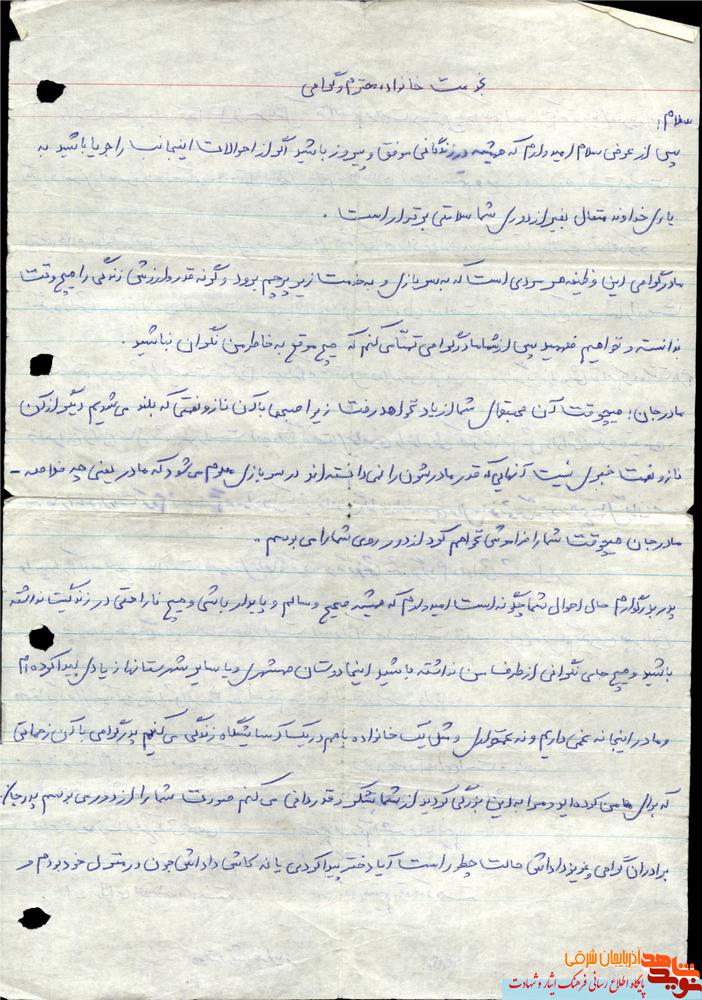 بخدمت خانواده محترم و گرامی
سلام؛
پس از عرض سلام امیدوارم که همیشه در زندگانی موفق و پیروز باشید اگر از احوالات اینجانب را جویا باشید به
یاری خداوند متعال بغیر از دوری شما سلامتی برقرار است .
مادر گرامی این وظیفه هر مردی است که به سربازی و به خدمت زیر پرچم برود وگرنه قدر و ارزش زندگی را هیچ وقت
ندانسته و نخواهیم فهمید پس از شما مادر گرامی تمنا می کنم که هیچ موقع به خاطر من نگران نباشید .
مادر جان؛ هیچوقت آن محبتهای شما از یاد نخواهد رفت زیرا صبحها با آن ناز و نعمتی که بلند می شدیم دیگر از آن
ناز و نعمت خبری نیست آنهایی که قدر مادرشون را نمی دانسته اند در سربازی معلوم می شود که مادر یعنی چه خلاصه -
مادر جان هیچوقت شما را فراموش نخواهم کرد از دور روی شما را می بوسم ..
پدر بزرگوارم حال احوال شما چگونه است امیدوارم که همیشه صحیح و سالم و پایدار باشی و هیچ ناراحتی در زندگیت نداشته
باشید و هیچ جای نگرانی از طرف من نداشته باشید اینجا دوستان همشهری و یا سایر شهرستانها زیادی پیدا کرده ام
و ما در اینجا نه غمی داریم و نه و مثل یک خانواده با هم در یک آسایشگاه زندگی می کنیم پدر گرامی با آن زحماتی
که برای ما من کرده اید و مرا به این بزرگی کردید از شما تشکر و قدردانی می کنم صورت شما را از دور می بوسم پدر جان.
برادران گرامی و عزیز داداش حالت چطور است آیا دختر پیدا کردی یا نه کاش داداش جون در منزل خود بودم و
نوید شاهد آذربایجان شرقی
پایگاه اطلاع رسانی فرهنگ ایثار و شهادت